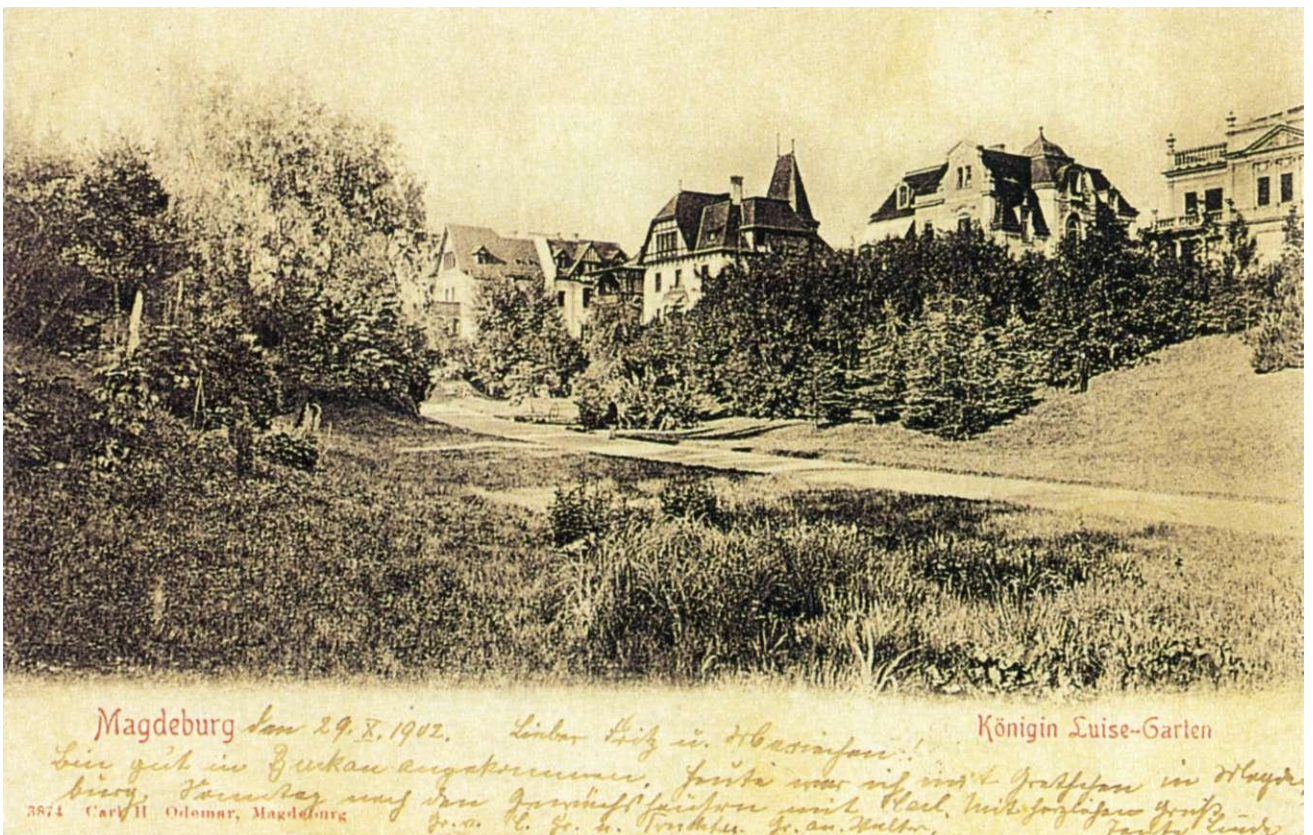 Magdeburg den 29. X. 1902. Lieber Fritz u. Mariechen!
Königin Luise-Garten
bin gut in Buckau angekommen. Heute war ich mit Gretchen in Magde-
burg, Sonntag nach den Gewächshäusern mit Karl. Mit herzlichem Gruß
3874 Carl H. Odemar, Magdeburg
Gr. v. Gr. u. Gr. an Walter.